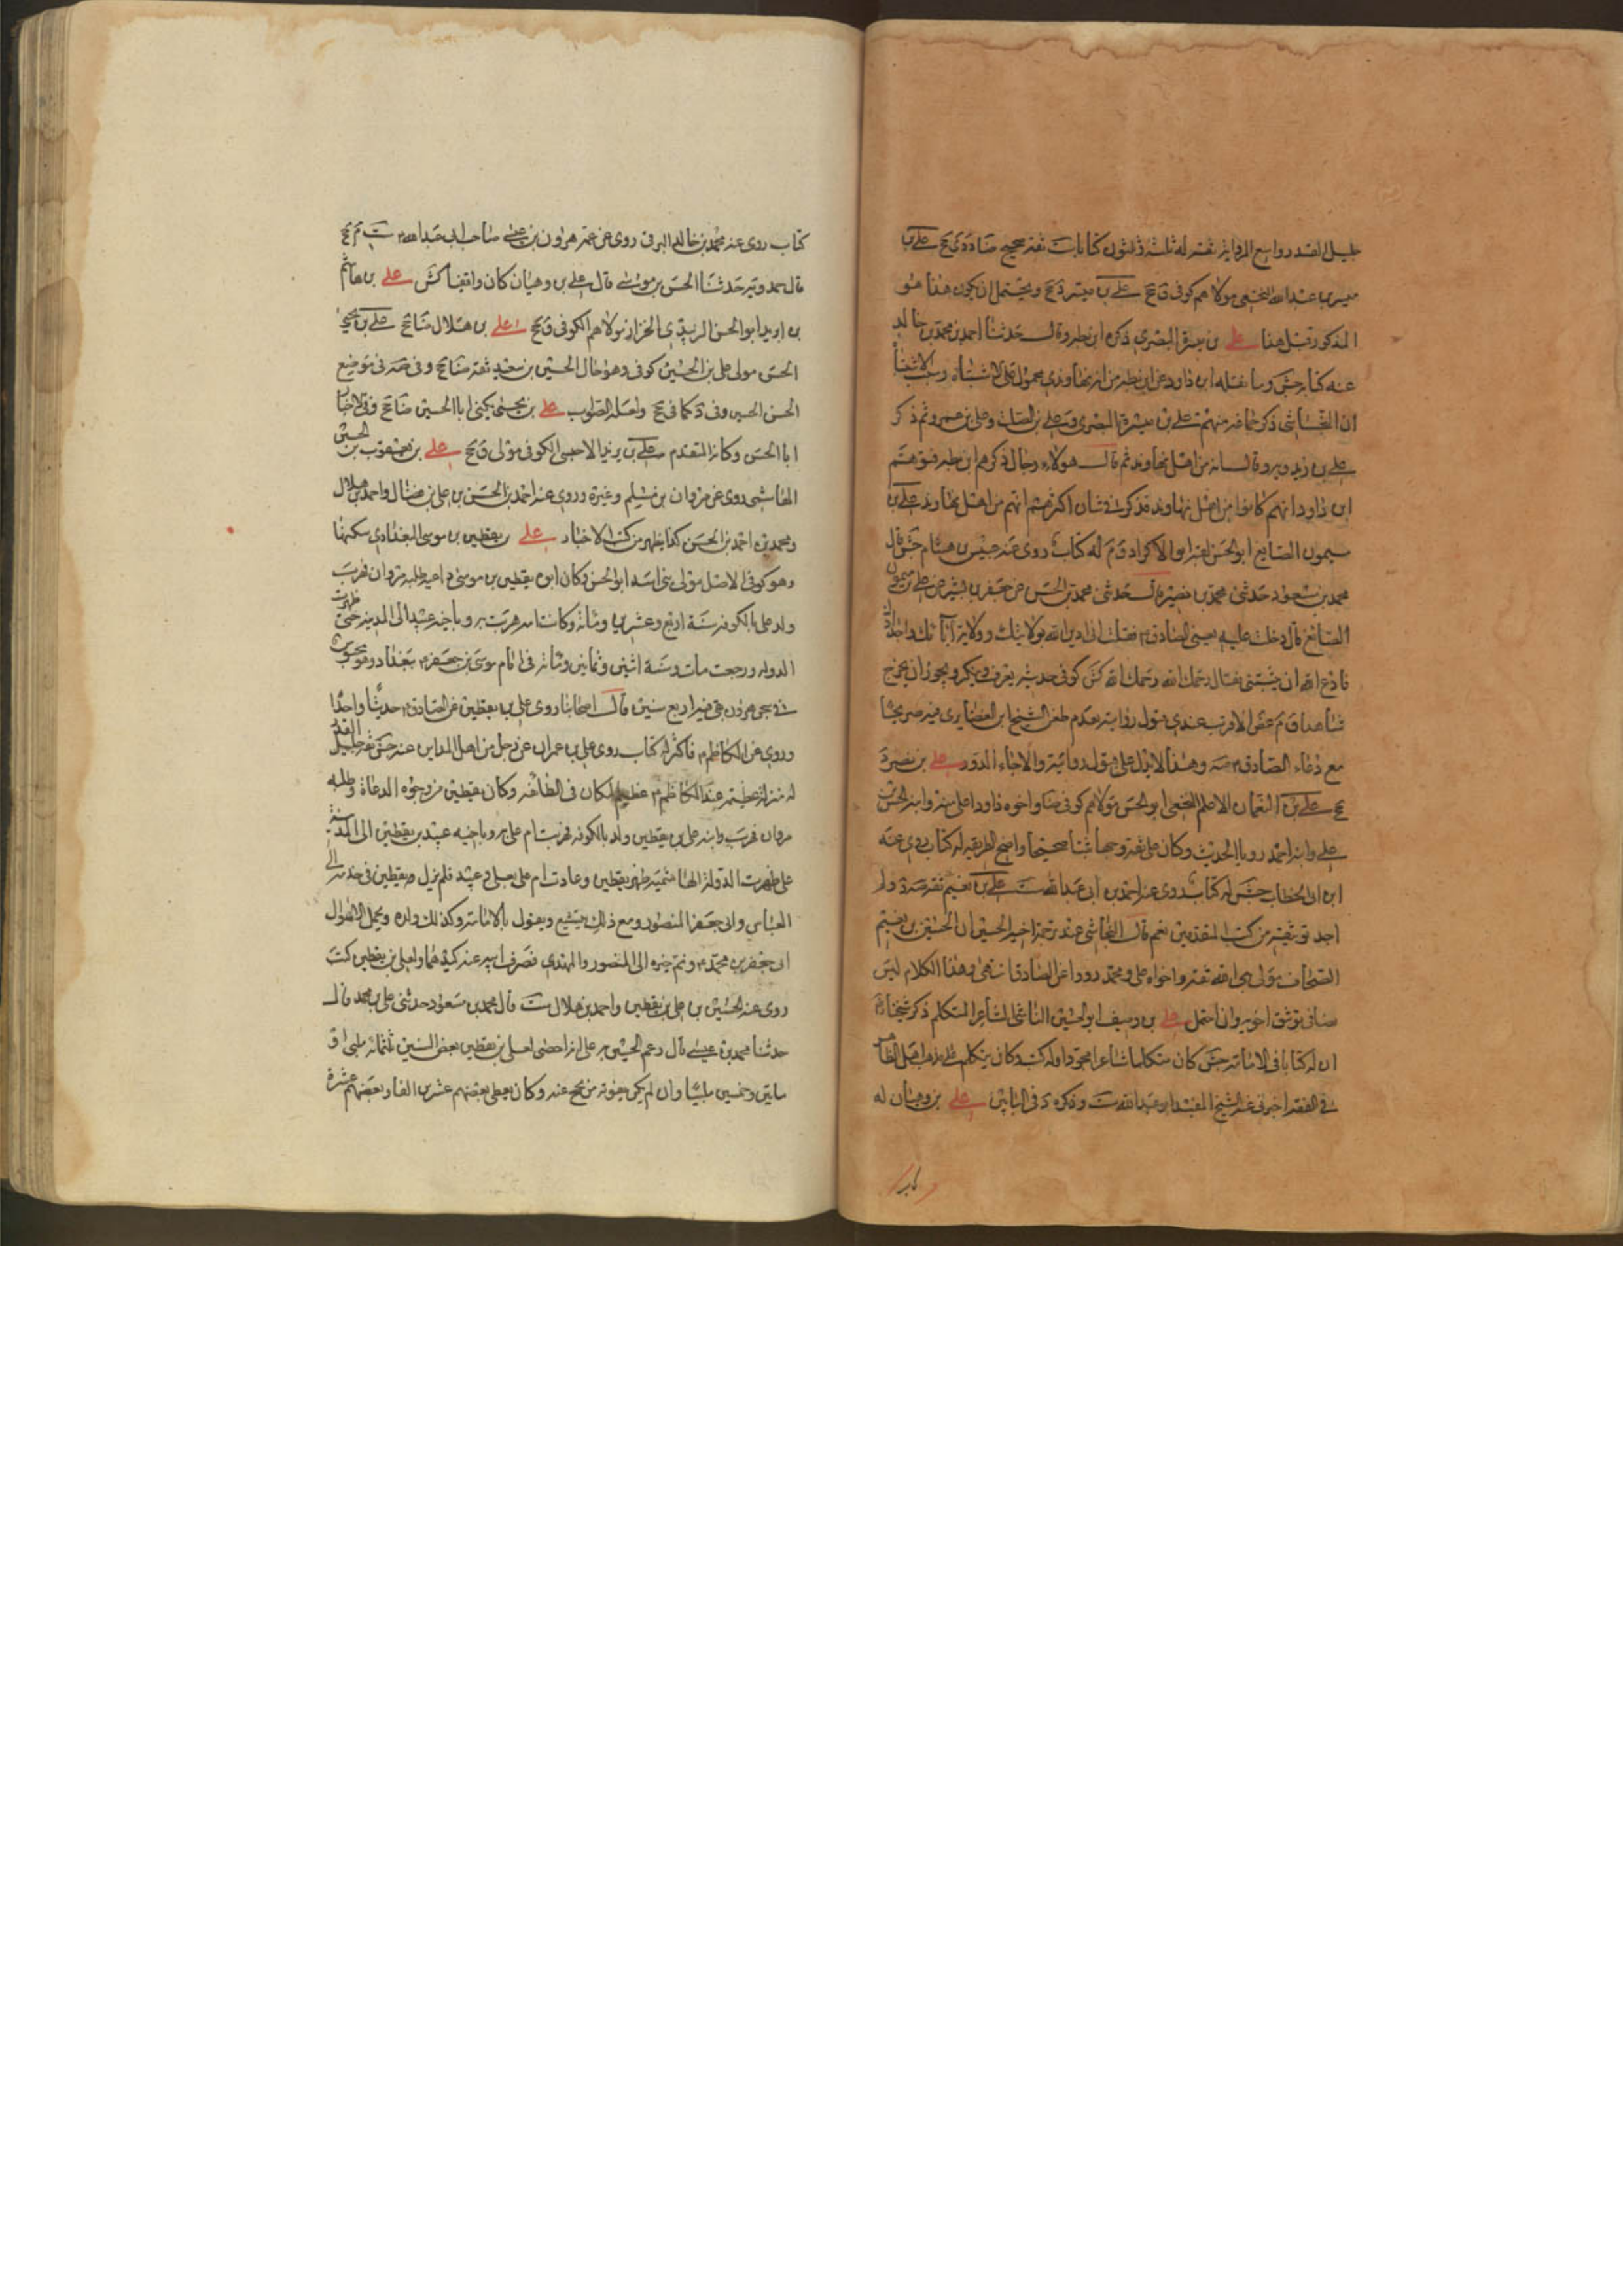 جليل القدر واسع الرواية ثقة له ثلثة وثلثون كتابا ست ثقة صحيح ضا د دى جخ علي بن
ميسر بن عبد الله النخعي مولاهم كوفي ق جخ علي بن ميسرة جخ ويحتمل ان يكون هذا هو
المذكور قبل هذا علي بن ميسرة البصري ذكره ابن بطه وقال حدثنا احمد بن محمد بن خالد
عنه كتابه جش وما نقله ابن داود عن ابن بطه من انه نهاوندي محمول على الاشتباه وسبب الاشتباه
ان النجاشي ذكر جماعة منهم علي بن ميسرة البصري وعلي بن الصلت وعلي بن عمرو ثم ذكر
علي بن زيدويه وقال انه من اهل نهاوند ثم قال هولاء رجال ذكرهم ابن بطه فتوهم
ابن داود انهم كانوا من اهل نهاوند فذكر في شان اكثرهم انهم من اهل نهاوند علي بن
ميمون الصايغ ابو الحسن لقبه ابو الاكراد ق م له كتاب روى عنه عبيس بن هشام جش قال
محمد بن مسعود حدثني محمد بن نصير قال حدثني محمد بن الحسن عن جعفر بن بشير عن علي بن ميمون
الصائغ قال دخلت عليه يعني الصادق فقلت اني ادين الله بولايتك وولاية آبائك واجدادك
فادع الله ان يثبتني فقال رحمك الله رحمك الله كش كوفي حديثه يعرف وينكر ويجوز ان يخرج
شاهدا ق م غض الاقرب عندي قبول روايته لعدم طعن الشيخ ابن الغضايري فيه صريحا
مع دعاء الصادق صه وهذا لا يدل على قبول روايته والا جاء الدور علي بن نصر د
جخ علي بن النعمان الاعلم النخعي ابو الحسن مولاهم كوفي ضا واخوه داود اعلى منه وابنه الحسن بن
علي وابنه احمد رويا الحديث وكان علي ثقة وجها ثبتا صحيحا واضح الطريقة له كتاب روى عنه
ابن ابي الخطاب جش له كتاب روى عنه احمد بن ابي عبد الله ست علي بن نعيم ثقة صه د ولم
اجد توثيقه من كتب المتقدمين نعم قال النجاشي عند ترجمة اخيه الحسين ان الحسين بن نعيم
الصحاف مولى بني اسد ثقة واخواه علي ومحمد رووا عن الصادق انتهى وهذا الكلام ليس
صافي توثيق اخويه وان احتمل علي بن وصيف ابو الحسين الناشي الشاعر المتكلم ذكر شيخنا
ان له كتابا في الامامة جش كان متكلما شاعرا مجودا وله كتب وكان يتكلم على مذهب اهل الظاهر
في الفقه اخبرني عنه الشيخ المفيد ابو عبد الله ست وذكره د في البابين علي بن وهبان له
كتاب
كتاب روى عنه محمد بن خالد البرقي روى عن عمه هرون بن عيسى صاحب ابي عبد الله ست م جخ
قال حمدويه حدثنا الحسن بن موسى قال علي بن وهبان كان واقفيا كش علي بن هاشم
بن البريد ابو الحسن الزبيدي الخزاز مولاهم الكوفي ق جخ علي بن هلال ضا جخ علي بن يحيى
الحسن مولى علي بن الحسين كوفي وهو خال الحسين بن سعيد ثقة ضا جخ وفي صه في موضع
الحسن الحسين وفي د كما في جخ ولعله الصواب علي بن يحيى يكنى ابا الحسين ضا جخ وفي الاخبار
ابا الحسن وكانه المتقدم علي بن يزيد الاحمسي الكوفي مولى ق جخ علي بن يعقوب بن الحسين
الهاشمي روى عن مروان بن مسلم وغيره وروى عنه احمد بن الحسن بن علي بن فضال واحمد بن هلال
ومحمد بن احمد بن الحسن كذا يظهر من كتب الاخبار علي بن يقطين بن موسى البغدادي سكنها
وهو كوفي الاصل مولى بني اسد ابو الحسن وكان ابوه يقطين بن موسى داعيه طلبه مروان فهرب
ولد علي بالكوفة سنة اربع وعشرين ومائة وكانت امه هربت به وباخيه عبيد الى المدينة حتى ظهرت
الدولة ورجعت مات سنة اثنين وثمانين ومائة في ايام موسى بن جعفر ببغداد وهو محبوس
في سجن هرون بقي فيه اربع سنين قال اصحابنا روى علي بن يقطين عن الصادق حديثا واحدا
وروى عن الكاظم فاكثر له كتاب روى علي بن عمران عن رجل من اهل المداين عنه جش ثقة جليل القدر
له منزلة عظيمة عند الكاظم عظيم المكان في الطائفة وكان يقطين من وجوه الدعاة وطلبه
مروان فهرب وابنه علي بن يقطين ولد بالكوفة فهربت ام علي به وباخيه عبيد بن يقطين الى المدينة
علي ظهرت الدولة الهاشمية ظهر يقطين وعادت ام علي بعلي وعبيد فلم يزل يقطين في خدمة
العباس وابي جعفر المنصور ومع ذلك يتشيع ويقول بالامامة وكذلك ولده ويحمل الاموال الى
ابي جعفر بن محمد ونم خبره الى المنصور والمهدي فصرف الله عنه كيدهما ولعلي بن يقطين كتب
روى عنه الحسين بن علي بن يقطين واحمد بن هلال ست قال محمد بن مسعود حدثني علي بن محمد قال
حدثنا محمد بن عيسى قال زعم الحسين بن علي انه احصى لعلي بن يقطين بعض السنين ثلثمائة ملبي او
مايتين وخمسين ملبيا وان لم يكن يفوته من يحج عنه وكان يعطي بعضهم عشرين الفا وبعضهم عشرة